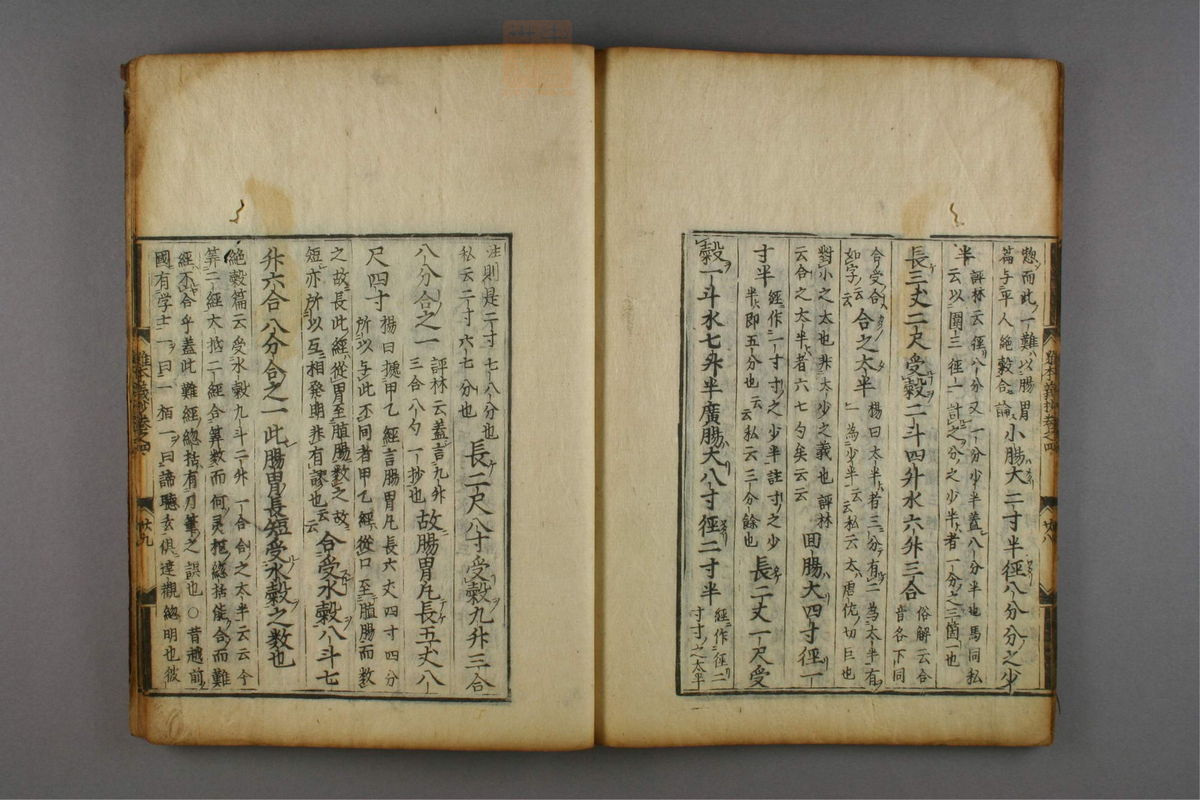 懲而此一難以腸胃
篇与平人絶穀合論
小腸大二寸半徑八分分之少
半
評林云徑八分又一分少半蓋八分半也馬同私
云以圍三徑一計之分之少半者一分之三箇一也
長三丈二尺受穀二斗四升水六升三合
俗解云合
音各下同
合之太半
楊曰太半者三分有二為太半有
一為少半云云私云太唐佐切巨也
對小之太也非太少之義也評林
云合之太半者六七勺矣云云
回腸大四寸徑一
寸半
經作一寸寸之少半註寸之少
半即五分也云云私云三分餘也
長二丈一尺受
穀一斗水七升半廣腸大八寸徑二寸半
經作徑二
寸寸之太半
註則是二寸七八分也
私云二寸六七分也
長二尺八寸受穀九升三合
八分合之一
評林云蓋言九升
三合八勺一抄也
故腸胃凡長五丈八
尺四寸
楊曰據甲乙經言腸胃凡長六丈四寸四分
所以与此不同者甲乙經從口至膃腸而數
之故長此經從胃至膃腸數之故
短亦所以互相發明非有謬也云云
合受水穀八斗七
升六合八分合之一此腸胃長短受水穀之数也
絶穀篇云受水穀九斗二升一合合之太半云云今
筭二經大抵二經合筭数而何灵枢總括能合而難
經不合乎蓋此難經總括有刀筆之誤也○昔越前
國有学士一曰一栢一曰諦聴玄倶達觀終明也彼
難本義抄卷之四
廿八
難本義抄卷之四
廿九